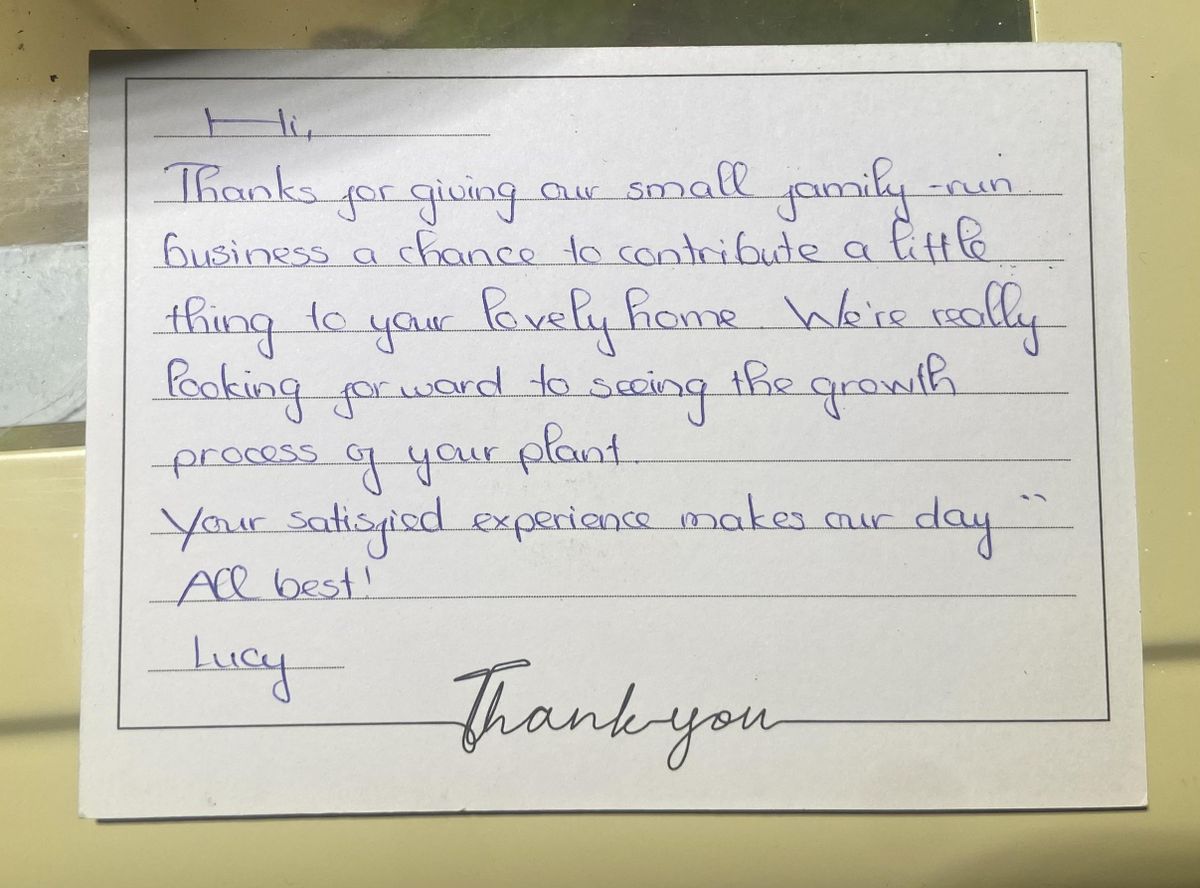 Hi,
Thanks for giving our small family-run
business a chance to contribute a little
thing to your lovely home. We're really
looking forward to seeing the growth
process of your plant.
Your satisfied experience makes our day
All best!
Lucy
Thank you